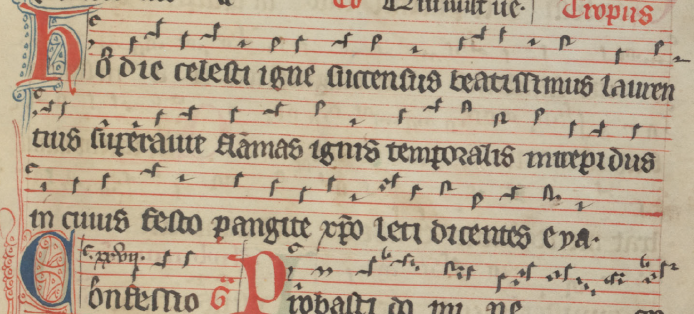 Tropus
Hodie celesti igne succensus beatissimus lauren
tius superavit flamas ignis temporalis intrepidus
in cuius festo pangite xpo leti dicentes eya.
Confessio Gr Probasti do mi ne